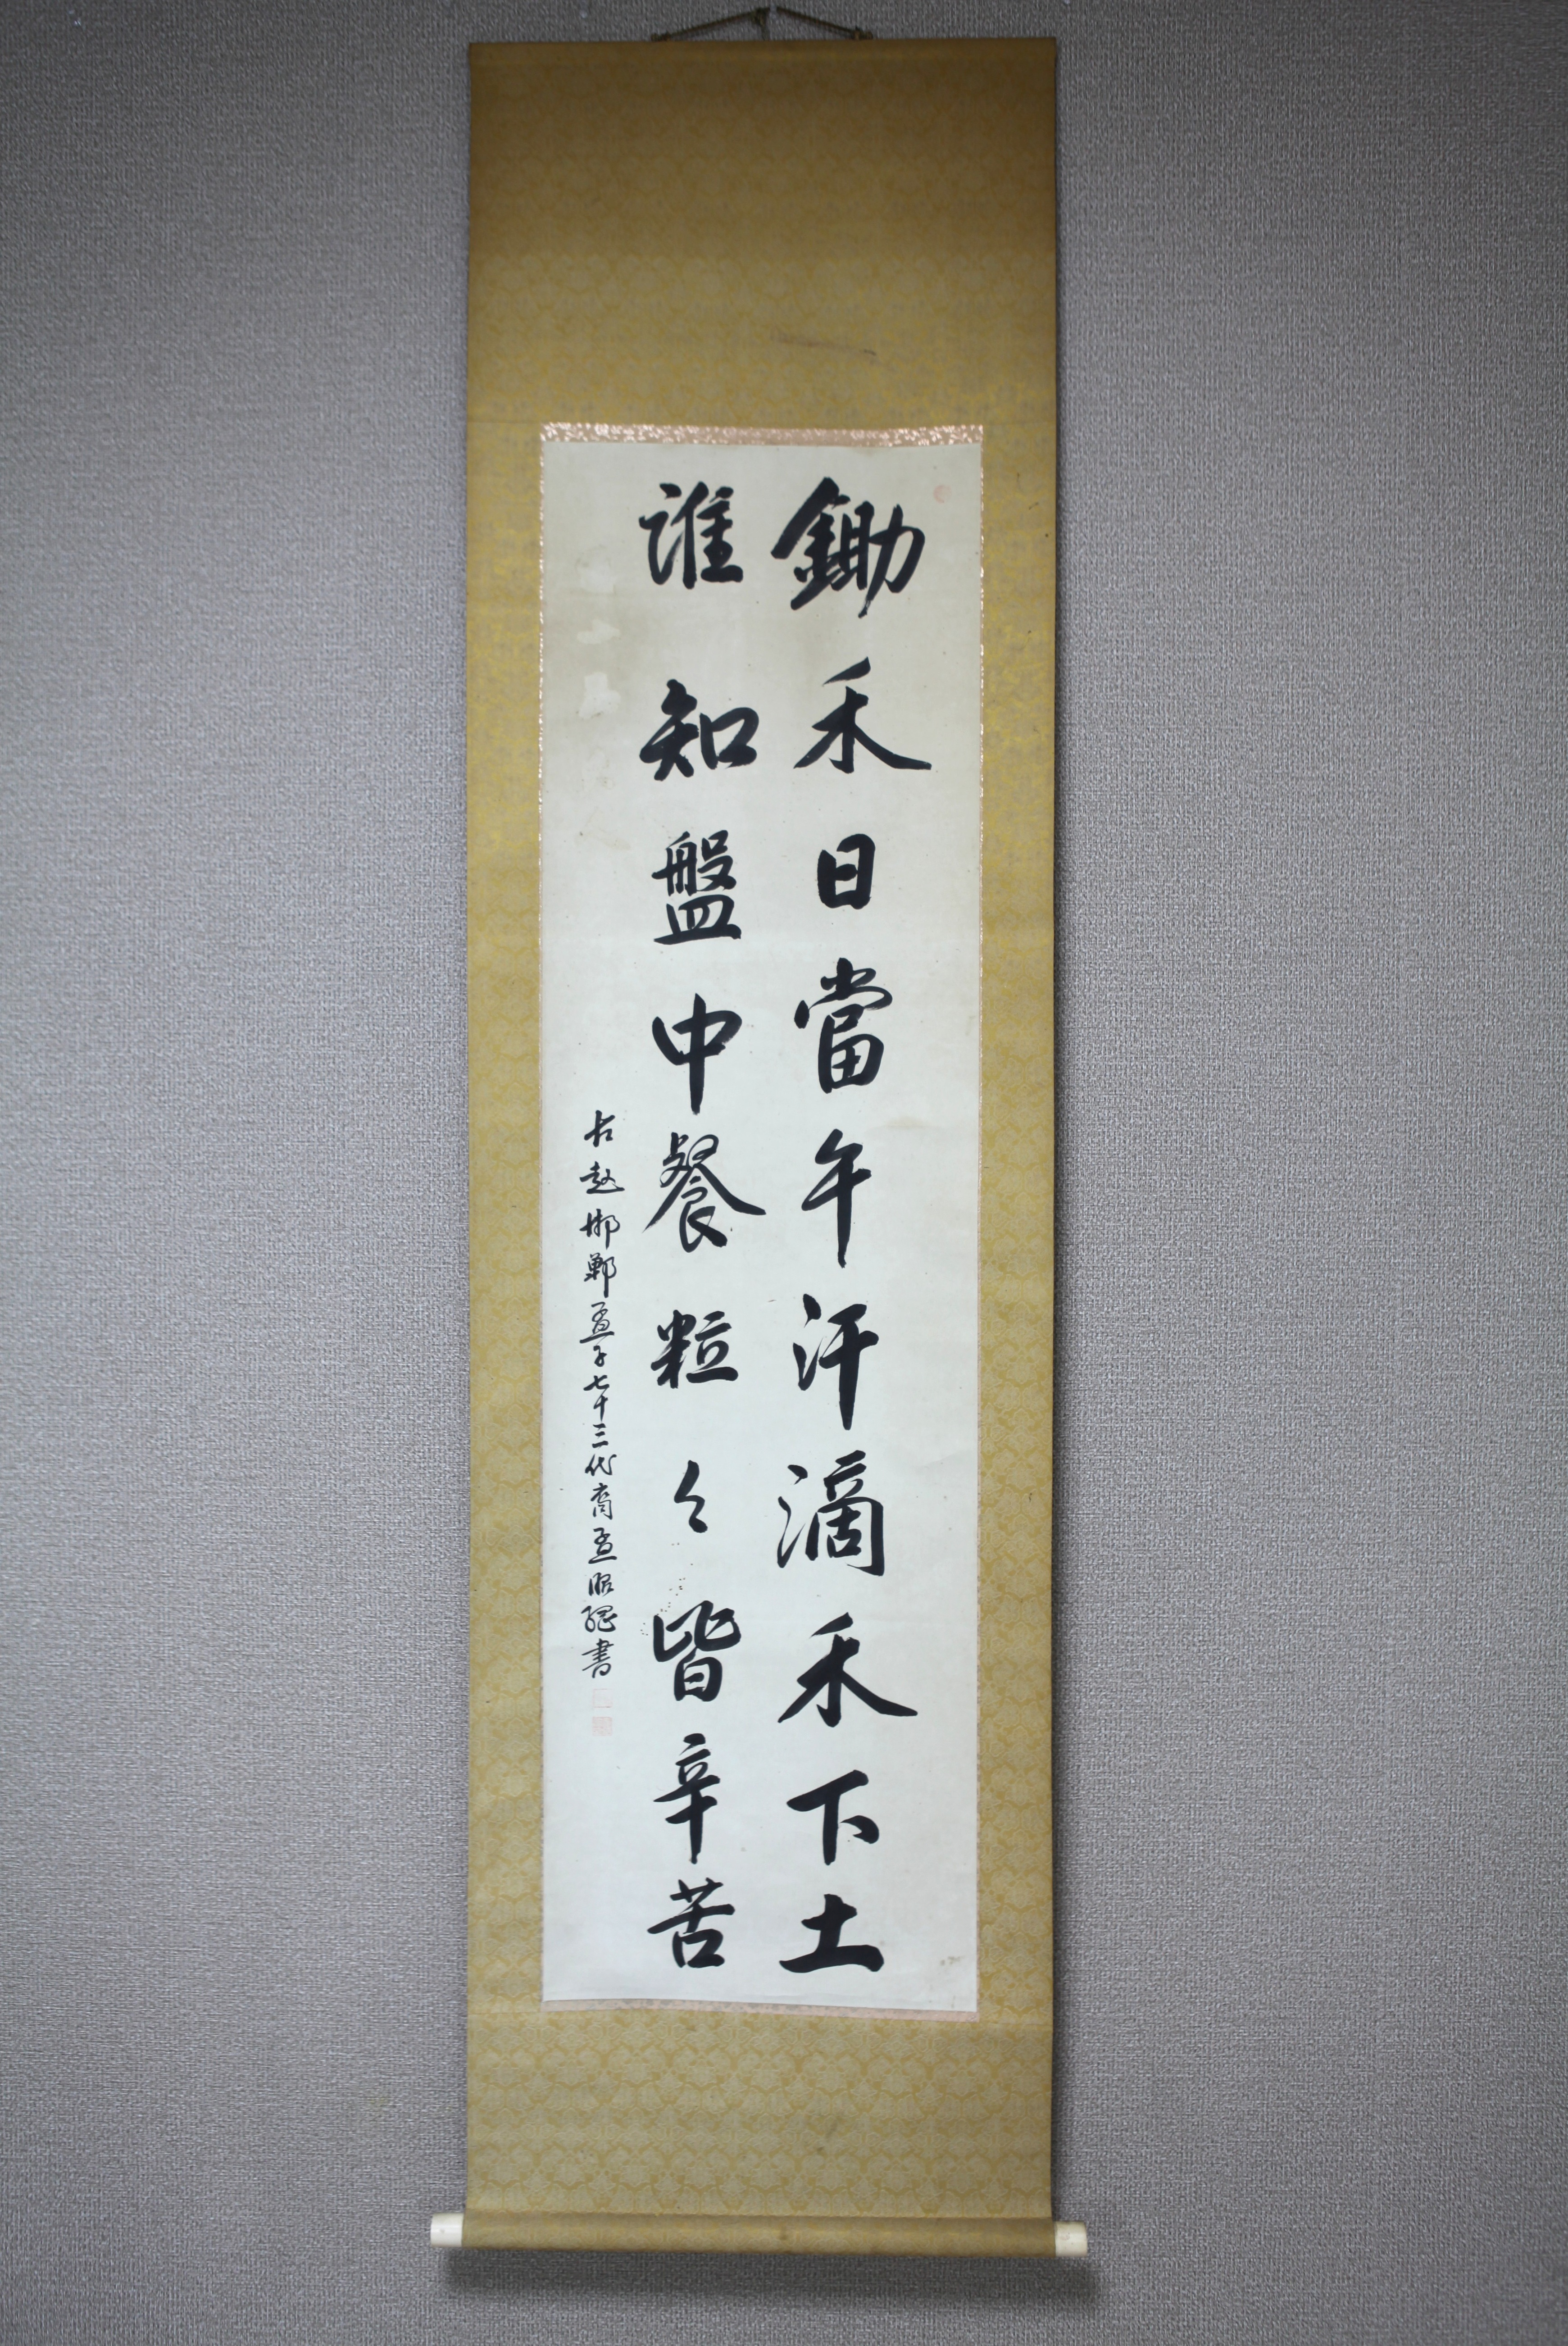 鋤禾日當午汗滴禾下土
誰知盤中餐粒々皆辛苦
古趙邯鄲孟子七十三代裔孟昭
書